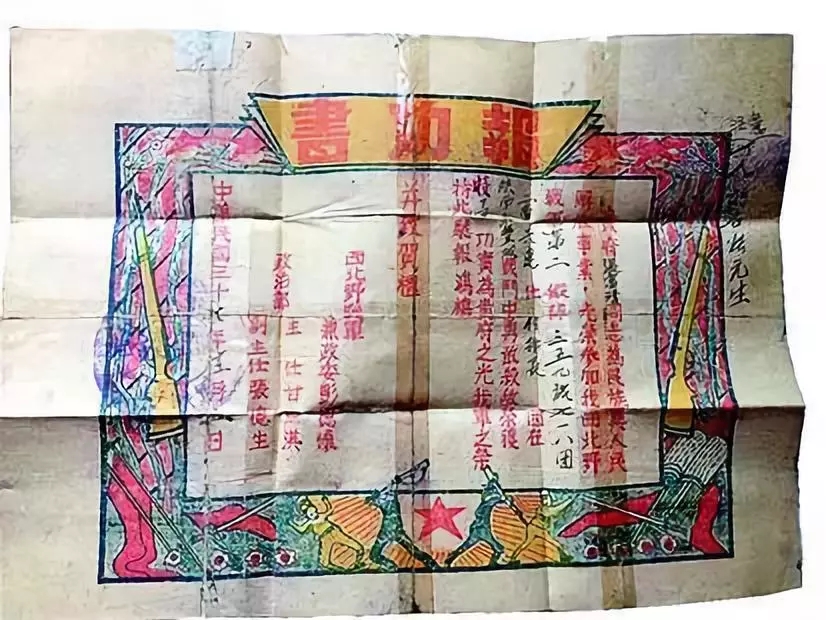 報功書
府 同志為民族與人民
解放事業光榮參加我西北野
第二縱隊三五九旅七一八團
任 長 因在
戰鬥中勇敢殺敵榮獲
功實為貴府之光我軍之榮
特此馳報鴻禧
并致賀禧
西北野戰軍
兼政委彭德懷
政治部
主任甘 淇
副主任張德生
中華民國三十七年 月 日
元生